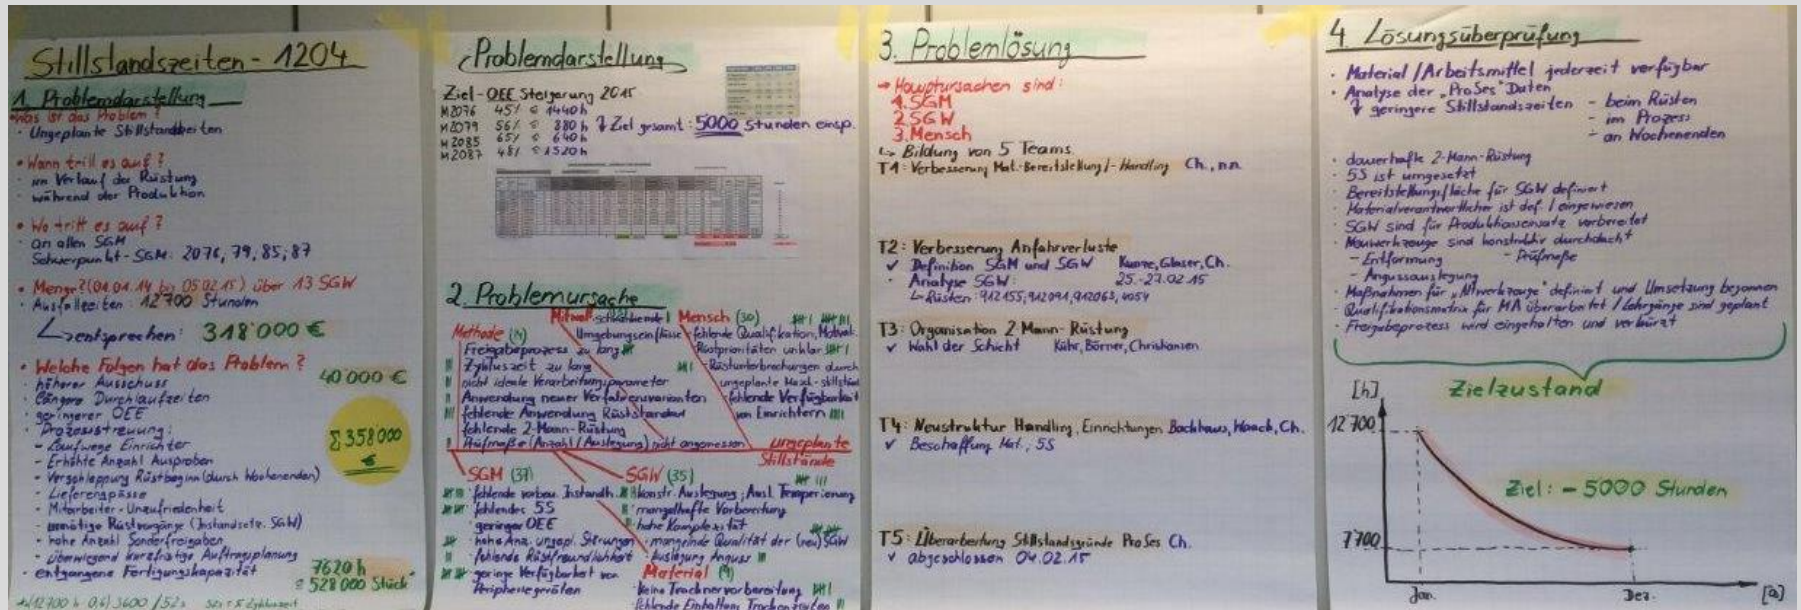 Stillstandszeiten - 1204
1. Problemdarstellung
Was ist das Problem?
· Ungeplante Stillstandzeiten
• Wann tritt es auf?
· im Verlauf der Rüstung
· während der Produktion
• Wo tritt es auf?
· an allen SGM
Schwerpunkt - SGM: 2076, 79, 85, 87
• Menge? (01.01.14 bis 05.02.15) über 13 SGW
· Ausfallzeiten: 12700 Stunden
entsprechen: 318'000 €
• Welche Folgen hat das Problem?
· höherer Ausschuss 40 000 €
· längere Durchlaufzeiten
· geringerer OEE
· Prozessstreuung:
- Laufwege Einrichter
Σ 358000 €
- Erhöhte Anzahl Ausproben
- Verschleppung Rüstbeginn (durch Wochenenden)
- Lieferengpässe
- Mitarbeiter-Unzufriedenheit
- unnötige Rüstvorgänge (Instandsetz. SGW)
- hohe Anzahl Sonderfreigaben
- überwiegend kurzfristige Auftragsplanung
· entgangene Fertigungskapazität 7620 h
≙ 528'000 Stück
Problemdarstellung
Ziel - OEE Steigerung 2015
M2076 45% ≙ 1440 h
M2079 56% ≙ 880 h
Ziel gesamt: 5000 Stunden einsp.
M2085 65% ≙ 640 h
M2087 48% ≙ 1520 h
2. Problemursache
Mitwelt
Mensch (30)
Methode (14)
Umgebungseinflüsse
fehlende Qualifikation, Motivat.
Freigabeprozess zu lang
Rüstprioritäten unklar
Zykluszeit zu lang
- Rüstunterbrechungen durch
nicht ideale Verarbeitungsparameter
ungeplante Masch.-stillstände
Anwendung neuer Verfahrensvarianten
fehlende Verfügbarkeit
fehlende Anwendung Rüststandard
von Einrichtern
fehlende 2-Mann-Rüstung
Prüfmaße (Anzahl / Auslegung) nicht angemessen
ungeplante
Stillstände
SGM (37)
SGW (35)
fehlende vorbeu. Instandh.
konstr. Auslegung; Ausl. Temperierung
fehlendes 5S
mangelhafte Vorbereitung
geringer OEE
hohe Komplexität
hohe Anz. ungepl. Störungen
mangelnde Qualität der (neu) SGW
fehlende Rüstfreundlichkeit
Auslegung Anguss
geringe Verfügbarkeit von
Peripheriegeräten
Material (9)
keine Trocknervorbereitung
fehlende Einhaltung Trockenzeiten
3. Problemlösung
→ Hauptursachen sind:
1. SGM
2. SGW
3. Mensch
↳ Bildung von 5 Teams
T1: Verbesserung Mat.-Bereitstellung/-Handling Ch., n.n.
T2: Verbesserung Anfahrverluste
✓ Definition SGM und SGW Kunze, Glaser, Ch.
· Analyse SGW: 25.-27.02.15
↳ Rüsten: 912155, 912091, 912063, 4054
T3: Organisation 2-Mann-Rüstung
✓ Wahl der Schicht Kühr, Börner, Christiansen
T4: Neustruktur Handling, Einrichtungen Backhaus, Ch.
✓ Beschaffung Mat., 5S
T5: Überarbeitung Stillstandsgründe ProSes Ch.
✓ abgeschlossen 04.02.15
4. Lösungsüberprüfung
· Material / Arbeitsmittel jederzeit verfügbar
· Analyse der "ProSes" Daten
geringere Stillstandszeiten - beim Rüsten
- im Prozess
- an Wochenenden
· dauerhafte 2-Mann-Rüstung
· 5S ist umgesetzt
· Bereitstellungsfläche für SGW definiert
· Materialverantwortlicher ist def. / eingewiesen
· SGW sind für Produktionseinsatz vorbereitet
· Neuwerkzeuge sind konstruktiv durchdacht
- Entformung - Prüfmaße
- Angussauslegung
· Maßnahmen für „Altwerkzeuge" definiert und Umsetzung begonnen
· Qualifikationsmatrix für MA überarbeitet / Lehrgänge sind geplant
· Freigabeprozess wird eingehalten und verkürzt
Zielzustand
[h]
12 700
Ziel: - 5000 Stunden
7700
Jan.
Dez.
[a]